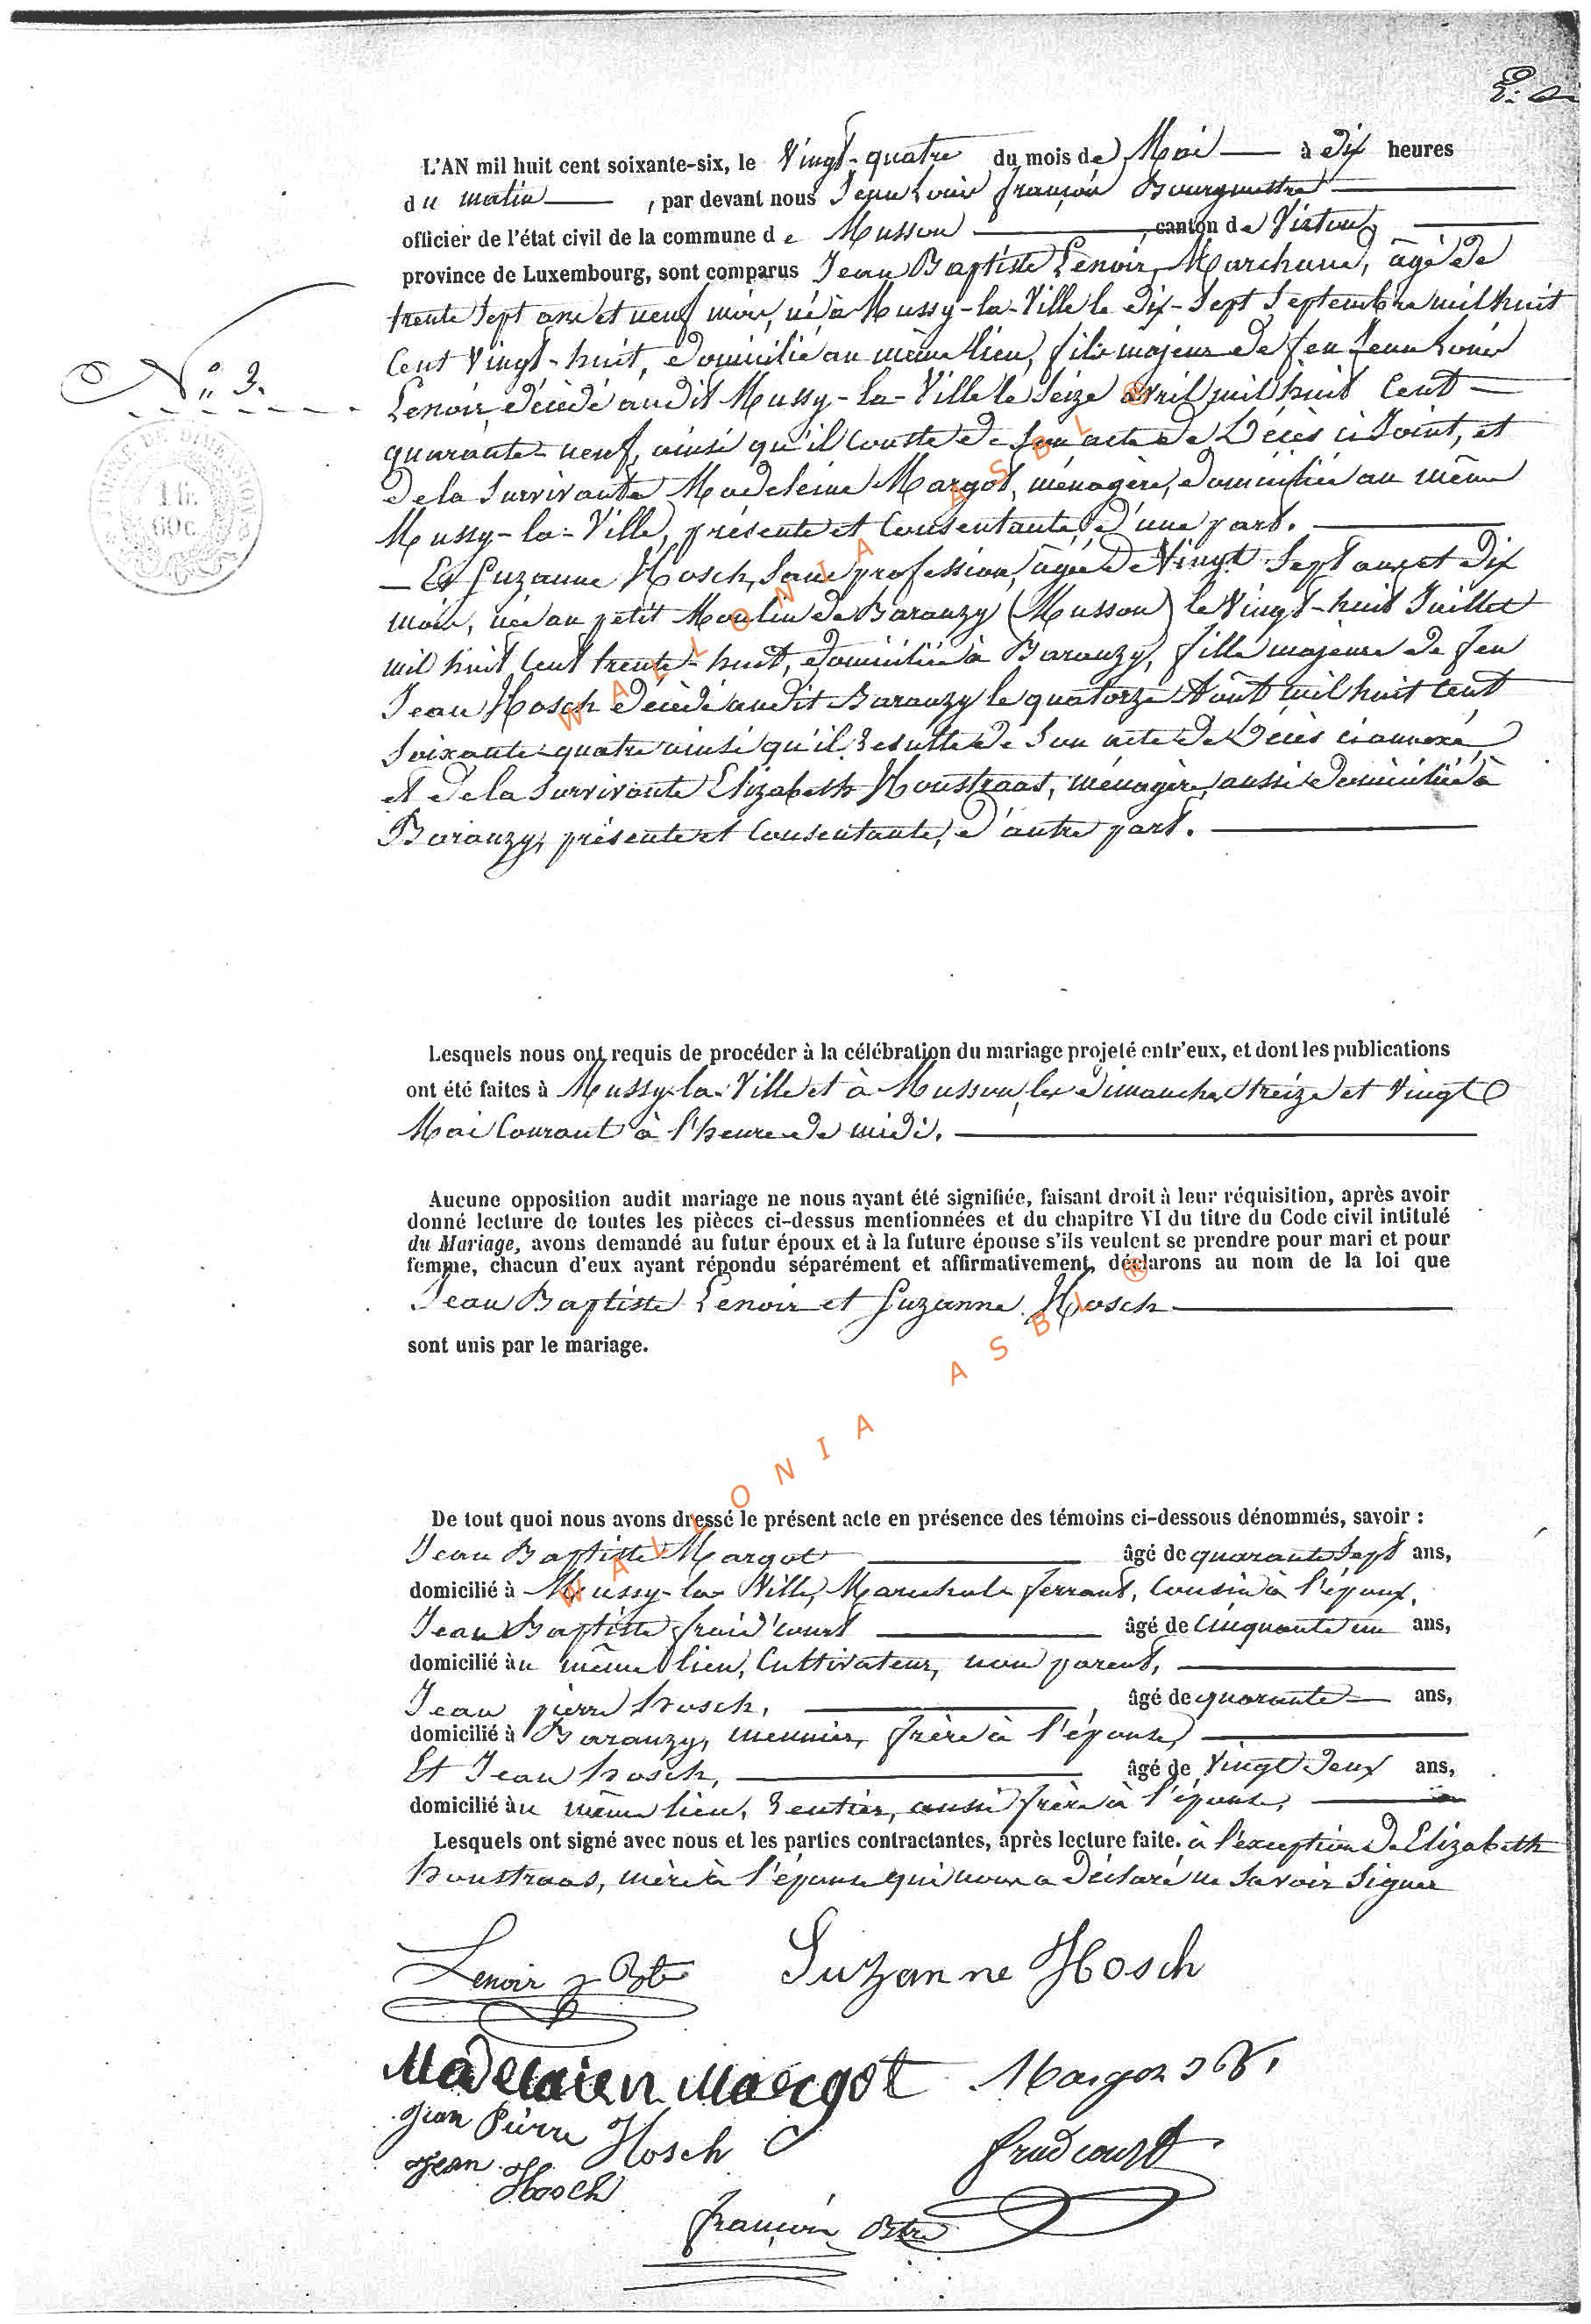 L'AN mil huit cent soixante-six, le Vingt-quatre du mois de Mai à dix heures
du matin, par devant nous Jean Louis François Bourgmestre
officier de l'état civil de la commune de Musson, canton de Virton,
province de Luxembourg, sont comparus Jean Baptiste Lenoir, Marchand, âgé de
trente Sept ans et neuf mois, né à Mussy-la-Ville le dix-Sept Septembre mil huit
Cent Vingt-huit, domicilié au même lieu, fils majeur de feu Jean Louis
N° 3.
Lenoir décédé audit Mussy-la-Ville le Seize avril mil huit Cent
quarante-neuf, ainsi qu'il Conste de Son acte de Décès ci Joint, et
de la Survivante Madeleine Margot, ménagère, domiciliée au même
Mussy-la-Ville, présente et Consentante, d'une part.
TIMBRE DE DIMENSION
1 fr.
60 c.
Et Suzanne Hosch, Sans profession, âgée de Vingt Sept ans et dix
mois, née au petit Moulin de Baranzy (Musson) le Vingt-huit Juillet
mil huit Cent trente-huit, domiciliée à Baranzy, fille majeure de feu
Jean Hosch décédé audit Baranzy le quatorze Août mil huit Cent
Soixante-quatre ainsi qu'il Resulte de Son acte de Décès ci annexé,
et de la Survivante Elizabeth Houstraas, ménagère, aussi domiciliée à
Baranzy, présente et Consentante, d'autre part.
Lesquels nous ont requis de procéder à la célébration du mariage projeté entr'eux, et dont les publications
ont été faites à Mussy-la-Ville et à Musson, les dimanches treize et Vingt
Mai Courant à l'heure de midi.
Aucune opposition audit mariage ne nous ayant été signifiée, faisant droit à leur réquisition, après avoir
donné lecture de toutes les pièces ci-dessus mentionnées et du chapitre VI du titre du Code civil intitulé
du Mariage, avons demandé au futur époux et à la future épouse s'ils veulent se prendre pour mari et pour
femme, chacun d'eux ayant répondu séparément et affirmativement, déclarons au nom de la loi que
Jean Baptiste Lenoir et Suzanne Hosch
sont unis par le mariage.
De tout quoi nous avons dressé le présent acte en présence des témoins ci-dessous dénommés, savoir :
Jean Baptiste Margot âgé de quarante Sept ans,
domicilié à Mussy-la-Ville, Marechale ferrant, Cousin à l'époux,
Jean Baptiste fraid'court âgé de Cinquante un ans,
domicilié au même lieu, Cultivateur, non parent,
Jean pierre hosch, âgé de quarante ans,
domicilié à Baranzy, meunier, frère à l'épouse,
Et Jean hosch, âgé de Vingt Deux ans,
domicilié au même lieu, Rentier, aussi frère à l'épouse,
Lesquels ont signé avec nous et les parties contractantes, après lecture faite. à l'exception de Elizabeth
houstraas, mère à l'épouse qui nous a déclaré ne Savoir Signer
Lenoir J Bte
Suzanne Hosch
Madelaien Margot
Margot J B
Jean Pierre Hosch
Jean Hosch
fraidcourt
françois Bstre
WALLONIA ASBL ®
WALLONIA ASBL ®